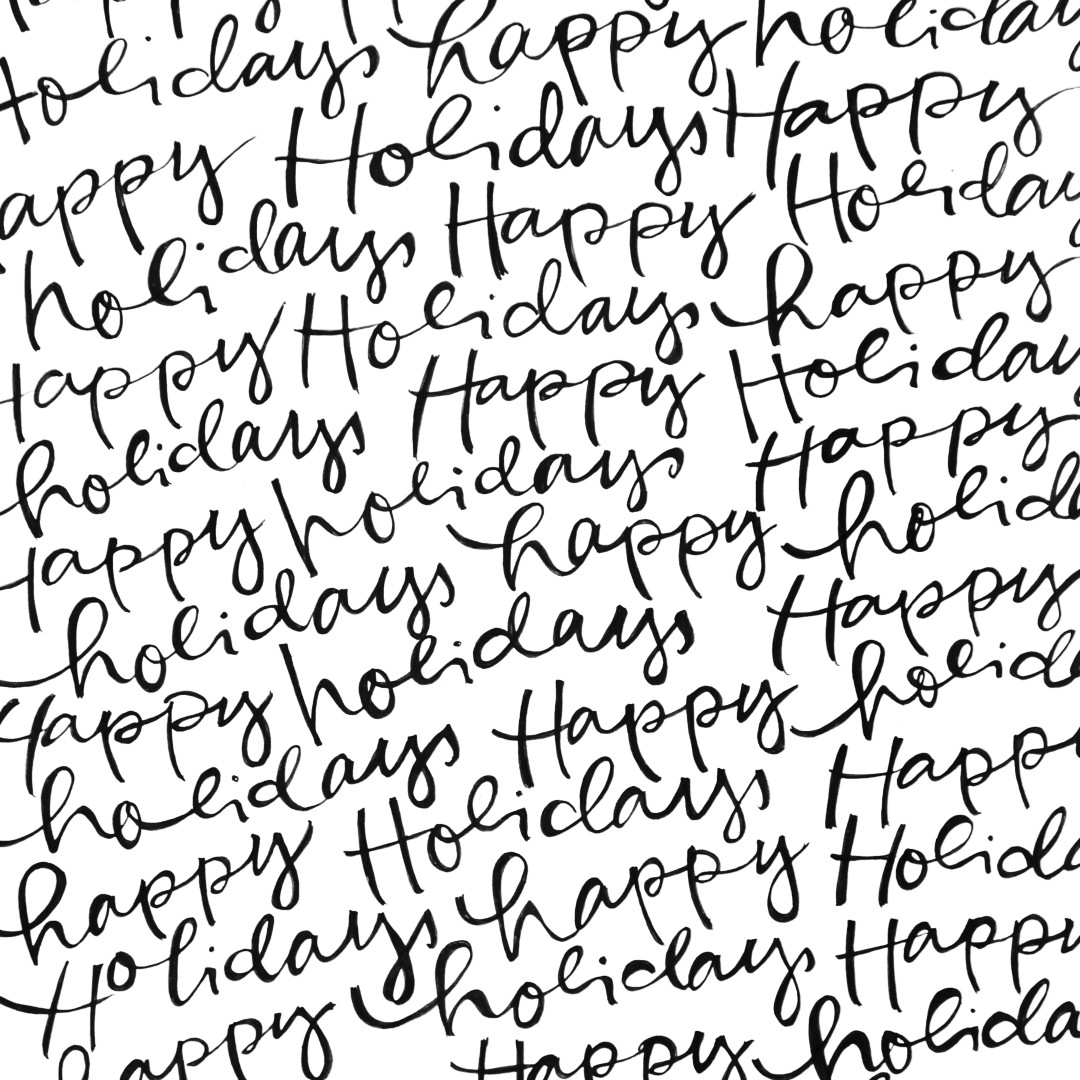 Holidays happy holiday
appy Holidays Happy
holidays Happy Holiday
Happy Holidays happy
holidays Happy Holiday
Happy holidays Happy
holidays happy holid
Happy holidays Happy
holidays Happy holid
happy Holidays Happ
Holidays happy Holida
happy holidays Happy
Happy holida